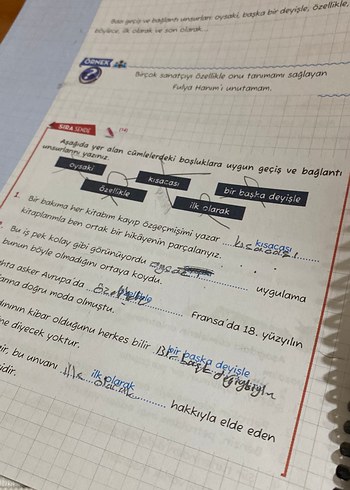 Bazı geçiş ve bağlantı unsurları: oysaki, başka bir deyişle, özellikle,
böylece, ilk olarak ve son olarak...
ÖRNEK
Birçok sanatçıyı özellikle onu tanımamı sağlayan
Fulya Hanım'ı unutamam.
SIRA SENDE
Aşağıda yer alan cümlelerdeki boşluklara uygun geçiş ve bağlantı
unsurlarını yazınız.
oysaki
kısacası
bir başka deyişle
özellikle
ilk olarak
1. Bir bakıma her kitabım kayıp özgeçmişimi yazar kısacası kısacası
kitaplarımla ben ortak bir hikâyenin parçalarıyız.
Bu iş pek kolay gibi görünüyordu uygulama
bunun böyle olmadığını ortaya koydu.
asker Avrupa'da özellikle Fransa'da 18. yüzyılın
doğru moda olmuştu.
kibar olduğunu herkes bilir. bir başka deyişle
diyecek yoktur.
bu unvanı ilk olarak hakkıyla elde eden